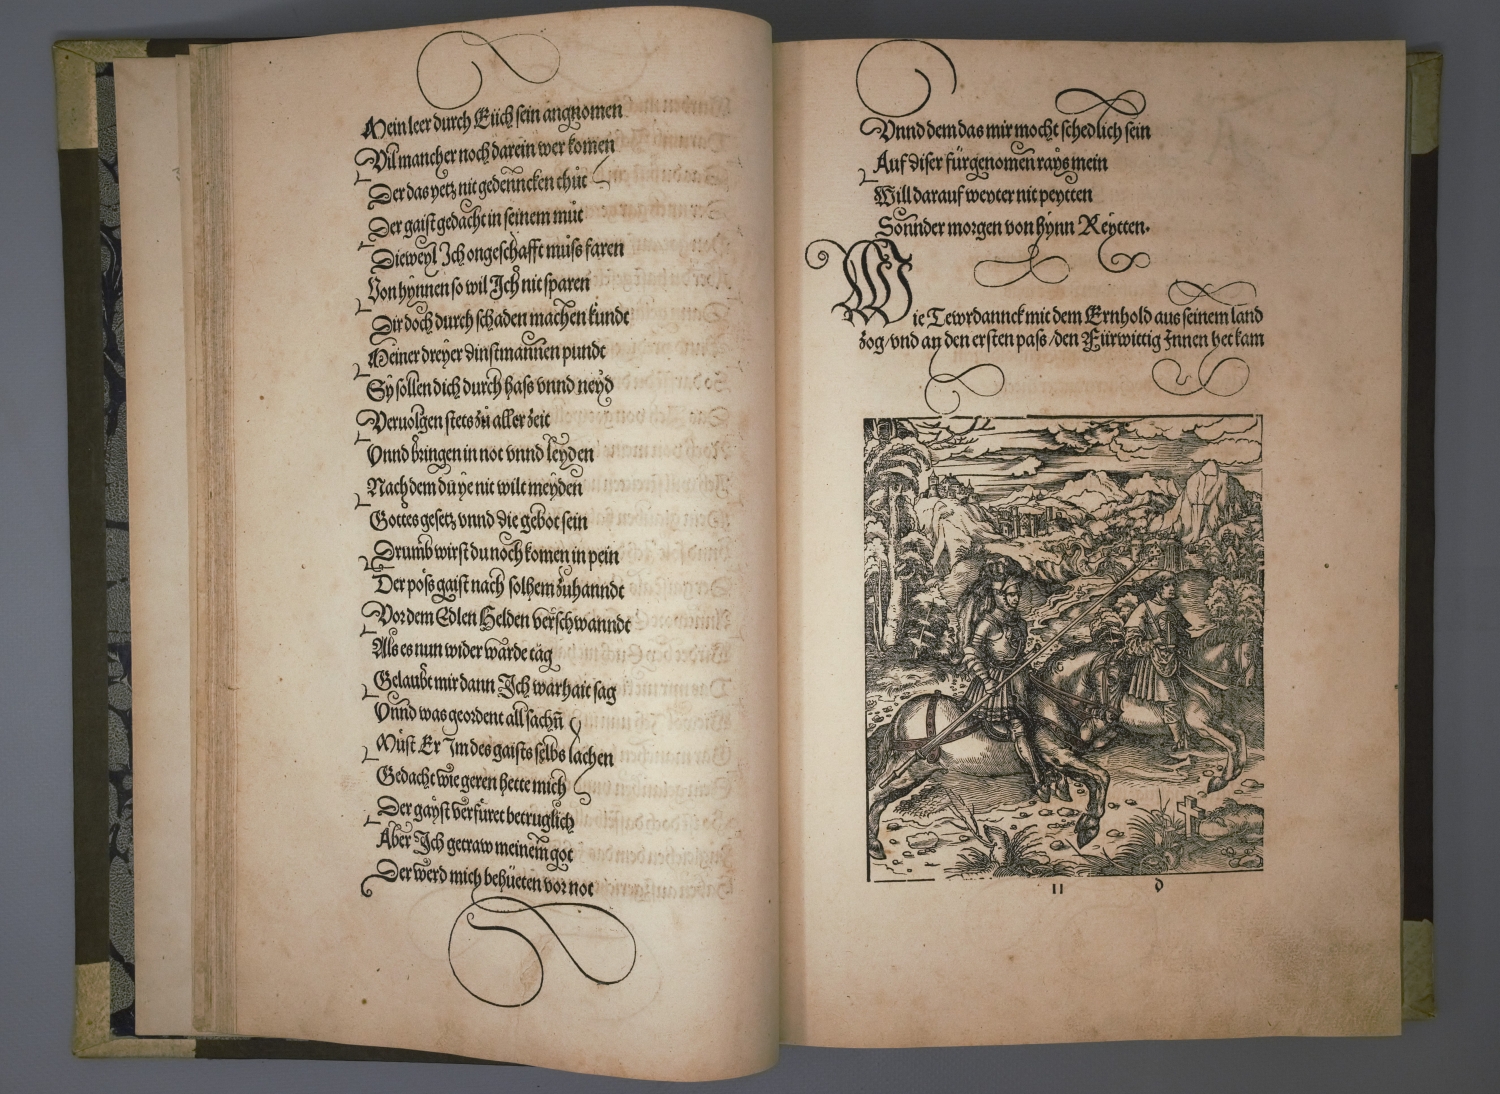 Mein leer durch Eüch sein angnomen
Vil mancher noch darein wer komen
Der das yetz nit gedenncken thůt
Der gaist gedacht in seinem můt
Dieweyl Ich ongeschafft můss faren
Von hÿnnen so wil Ich nit sparen
Dir doch durch schaden machen kundt
Meiner dreyer dinstmannen pundt
Sÿ sollen dich durch hass vnnd neÿd
Veruolgen stets zů aller zeit
Vnnd bringen in not vnnd leyden
Nach dem du ÿe nit wilt meyden
Gottes gesetz vnnd die gebot sein
Drumb wirst du noch komen in pein
Der pöss gaist nach solhem zuhanndt
Vor dem Edlen Helden verschwanndt
Als es nun wider warde tag
Gelaubt mir dann Ich warhait sag
Vnnd was geordent all sachñ
Můst Er Im des gaists selbs lachen
Gedacht wie geren hette mich
Der gayst verfüret betruglich
Aber Ich getraw meinem got
Der werd mich behüeten vor not
Vnnd dem das mir mocht schedlich sein
Auf diser fürgenomen raÿs mein
Will darauf weyter nit peytten
Sonnder morgen von hÿnn Reytten.
Wie Tewrdannck mit dem Ernhold aus seinem land
zog/vnd an den ersten pass/den Fürwittig Innen het kam
11 d